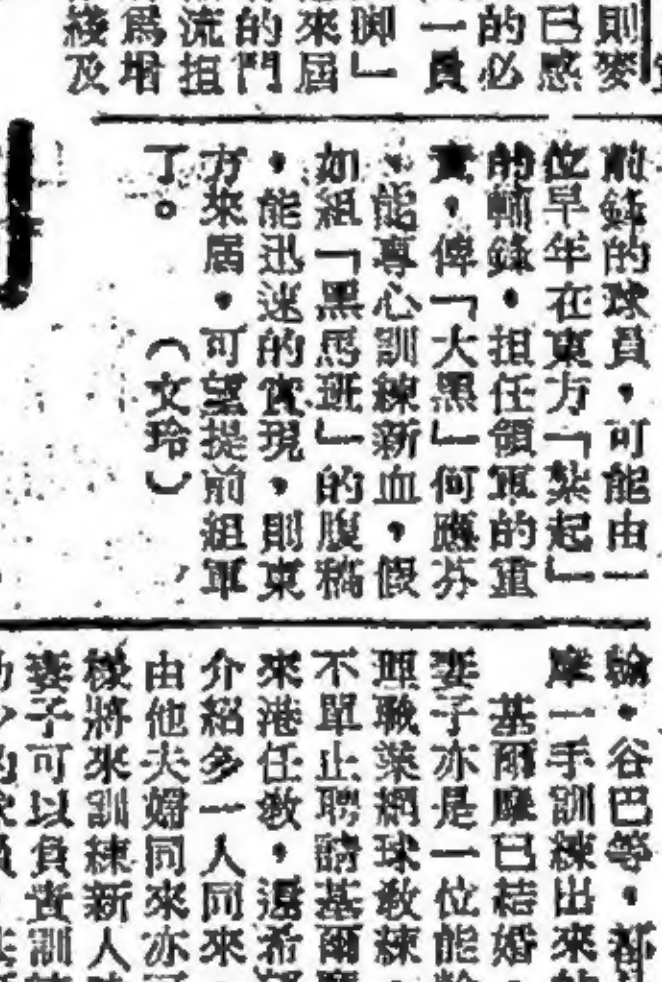 則麥
已感
的必
一員
脚」
來屆
的門
流担
爲增
綫及
前鋒的球員,可能由一
位早年在東方「紮起」
的輔鋒,担任領軍的重
責,俾「大黑」何應芬
、能專心訓練新血,假
如組「黑馬班」的腹稿
,能迅速的實現,則東
方來屆,可望提前組軍
了。 (文玲)
輸,谷巴等,都
摩一手訓練出來
基爾摩已結婚,
妻子亦是一位能
理職業網球敎練,
不單止聘請基爾
來港任敎,還希
介紹多一人同來
由他夫婦同來亦
樣將來訓練新人
妻子可以負責訓